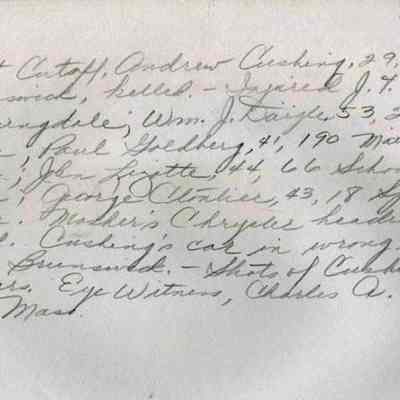 t Cutoff, Andrew Cushing, 29,
swick, killed. - Injured J. F.
ringdale; Wm. J. Daigle, 53, 2
; Paul Goldberg, 41, 190 Mai
; John Lizotte, 44, 66 Schoo
; George Cloutier, 43, 18 S
. Mosher's Chrysler head
d. Cushing's car in wrong
Brunswick. - Shots of Cush
ers. Eye Witness, Charles A.
Mass.